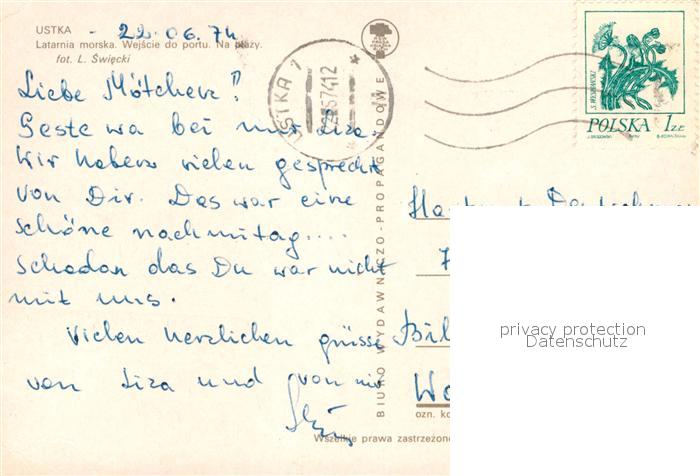 USTKA - 22.06.74
Latarnia morska. Wejście do portu. Na plaży.
fot. L. Święcki
Liebe Mötcherz!
Geste wa bei mir Liza.
Wir haben vielen gesprecht
von Dir. Das war eine
schöne nachmitag....
Schadan das Du war nicht
mit uns.
Vielen herzlichen grüsse
von Liza und von mir
BIURO WYDAWNICZO-PROPAGANDOWE
USTKA 1
S. WYSPIAŃSKI
POLSKA 1 ZŁ
Bil
Wo
ozn. ko
Wszelkie prawa zastrzeżone
privacy protection
Datenschutz